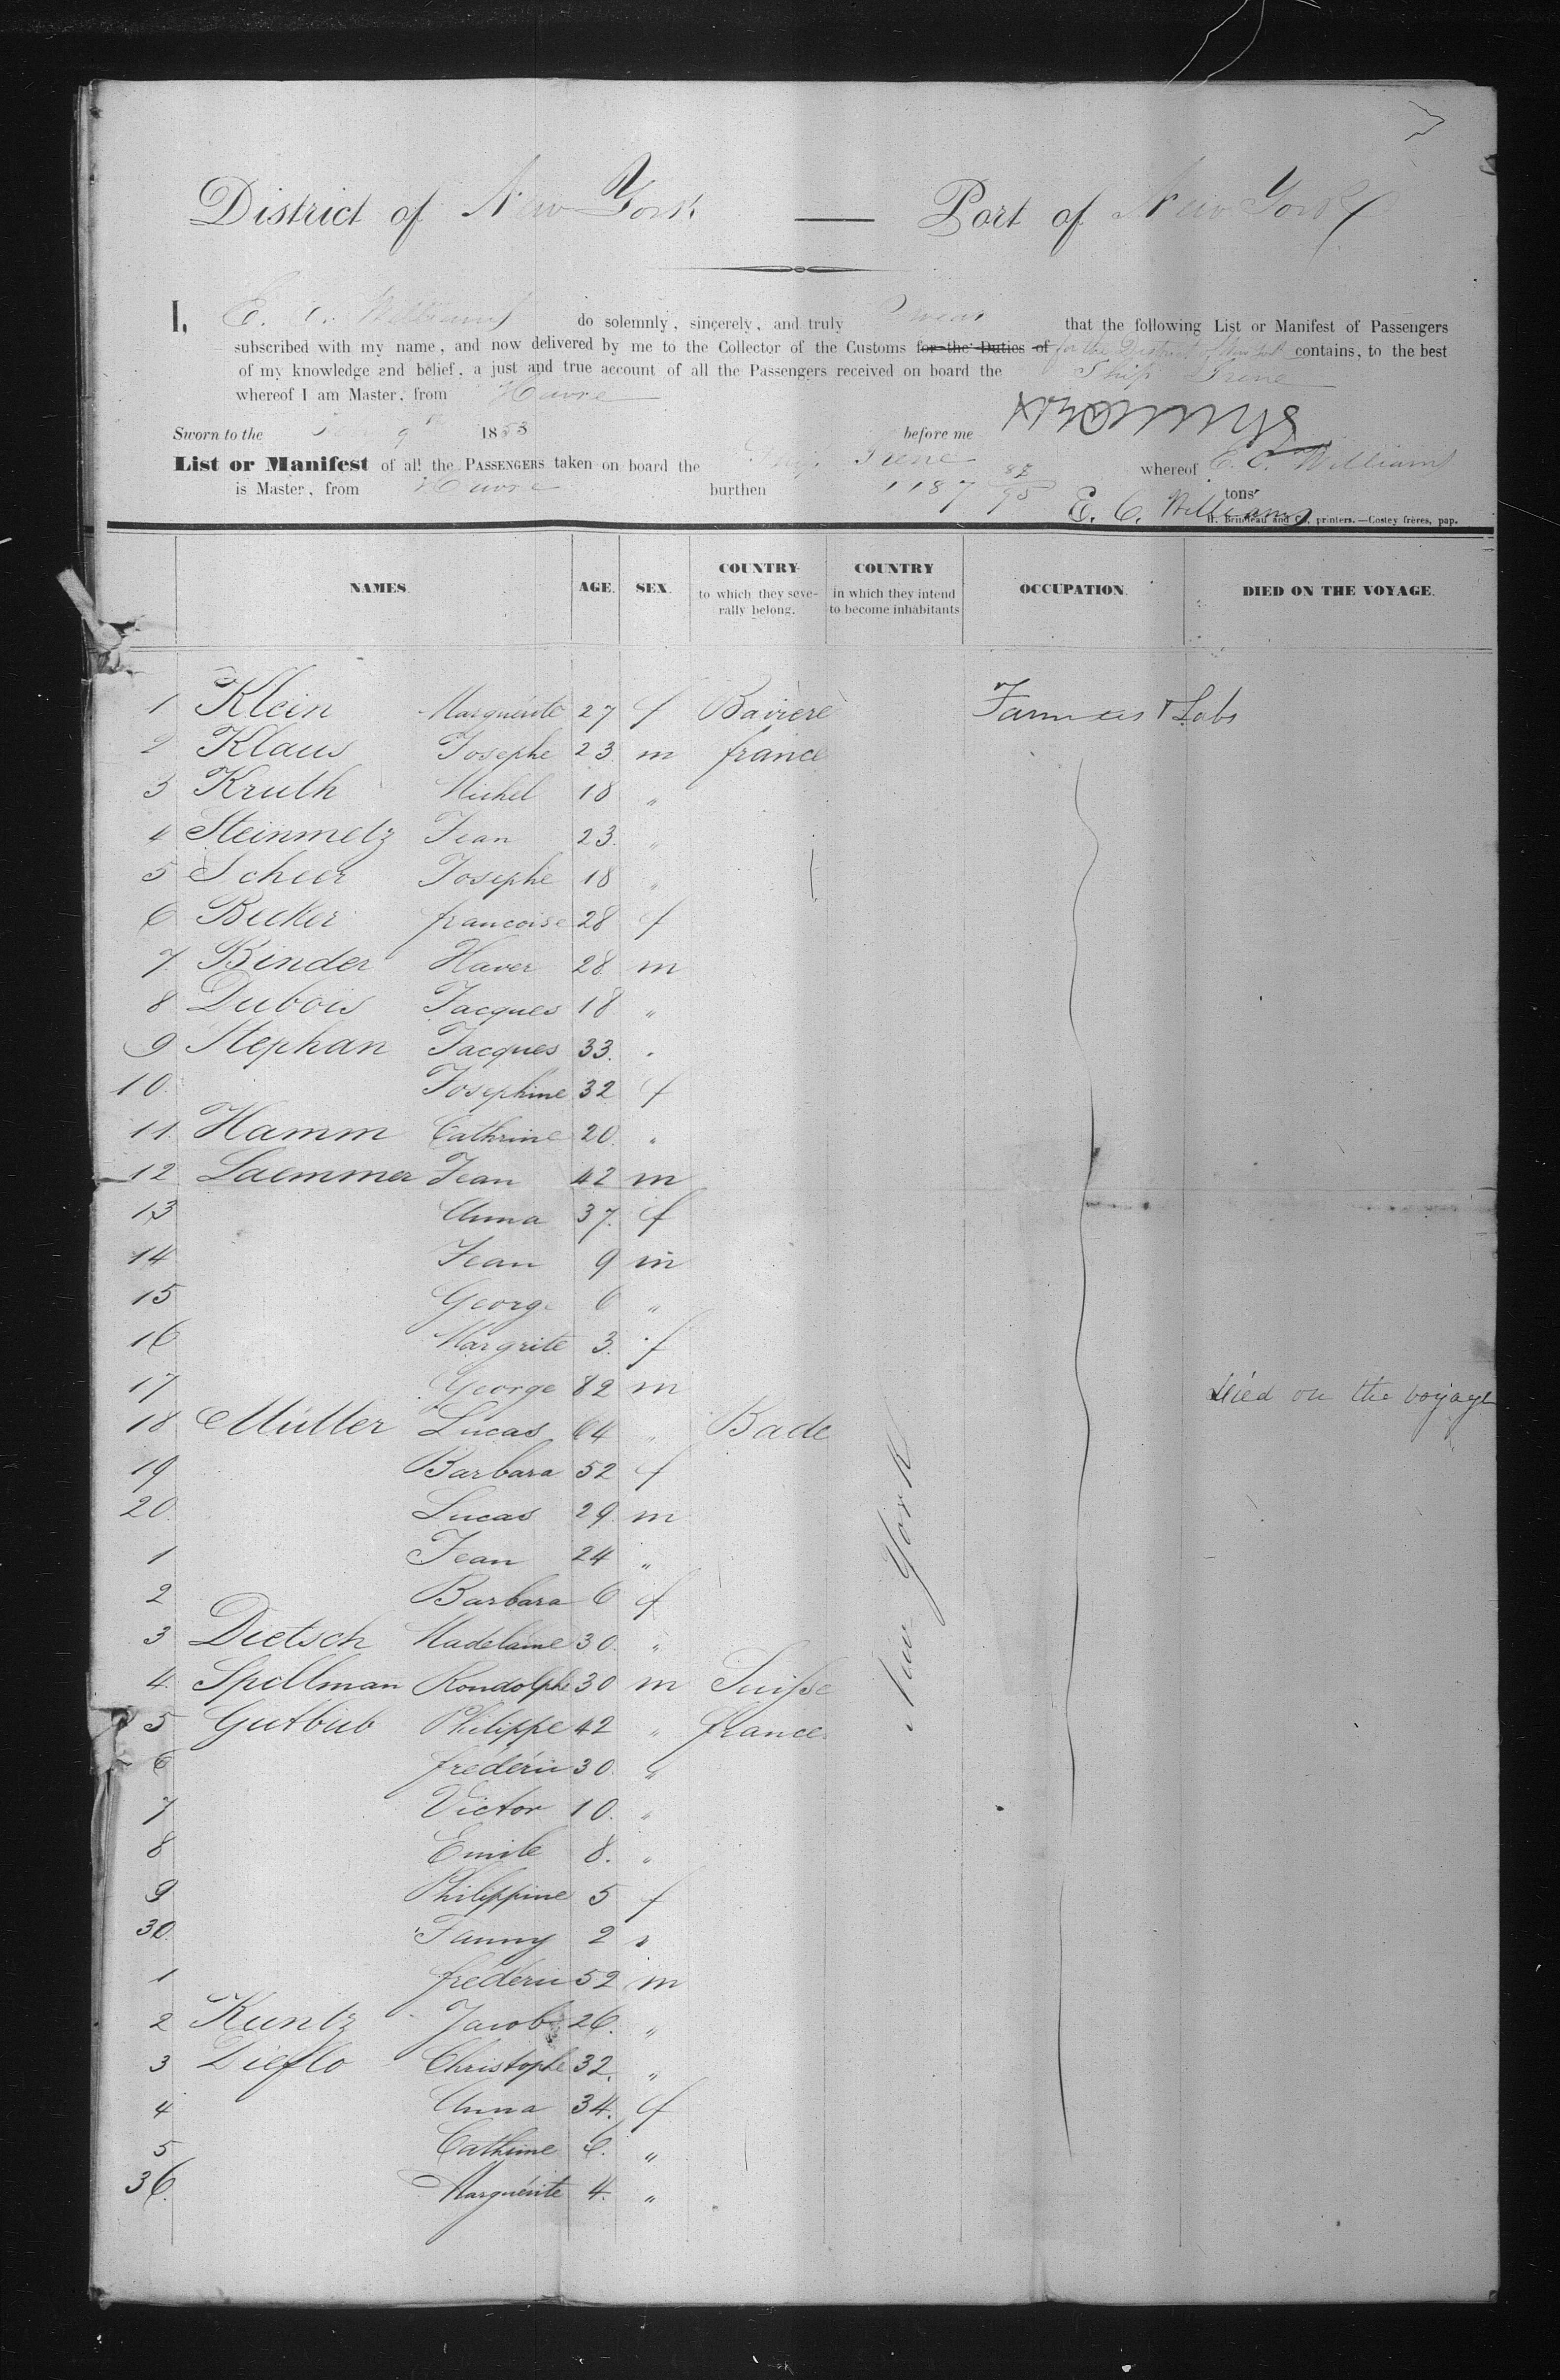 District of New York — Port of New York
I, E. C. Williams do solemnly, sincerely, and truly swear that the following List or Manifest of Passengers
subscribed with my name, and now delivered by me to the Collector of the Customs for the Duties of for the District of New York contains, to the best
of my knowledge and belief, a just and true account of all the Passengers received on board the Ship Irene
whereof I am Master, from Havre
Sworn to the 9th 1853 before me
List or Manifest of all the PASSENGERS taken on board the Ship Irene whereof E. C. Williams
is Master, from Havre burthen 1187 82/95 tons
E. C. Williams
H. Brindeau and Co, printers.—Costey frères, pap.
NAMES. AGE. SEX. COUNTRY to which they severally belong. COUNTRY in which they intend to become inhabitants OCCUPATION. DIED ON THE VOYAGE.
1 Klein Marguérite 27 f Baviere Farmers & Labs
2 Klaus Josephe 23 m france
3 Kruth Michel 18 "
4 Steinmetz Jean 23 "
5 Scheer Josephe 18 "
6 Becker francoise 28 f
7 Binder Xaver 28 m
8 Dubois Jacques 18 "
9 Stephan Jacques 33 "
10 Josephine 32 f
11 Hamm Cathrine 20 "
12 Laemmer Jean 42 m
13 Anna 37 f
14 Jean 9 m
15 George 6 "
16 Margrite 3 f
17 George 82 m Died on the voyage
18 Müller Lucas 64 " Bade
19 Barbara 52 f
20 Lucas 29 m
1 Jean 24 "
2 Barbara 6 f
3 Dietsch Madelaine 30 "
4 Spellman Rondolphe 30 m Suisse
5 Gutbub Philippe 42 " france
6 frédéric 30 "
7 Victor 10 "
8 Emile 8 "
9 Philippine 5 f
30 Fanny 2 "
1 frédéric 52 m
2 Kuntz Jacob 26 "
3 Dieflo Christophe 32 "
4 Anna 34 f
5 Cathrine 6 "
36 Marguérite 4 "
New York